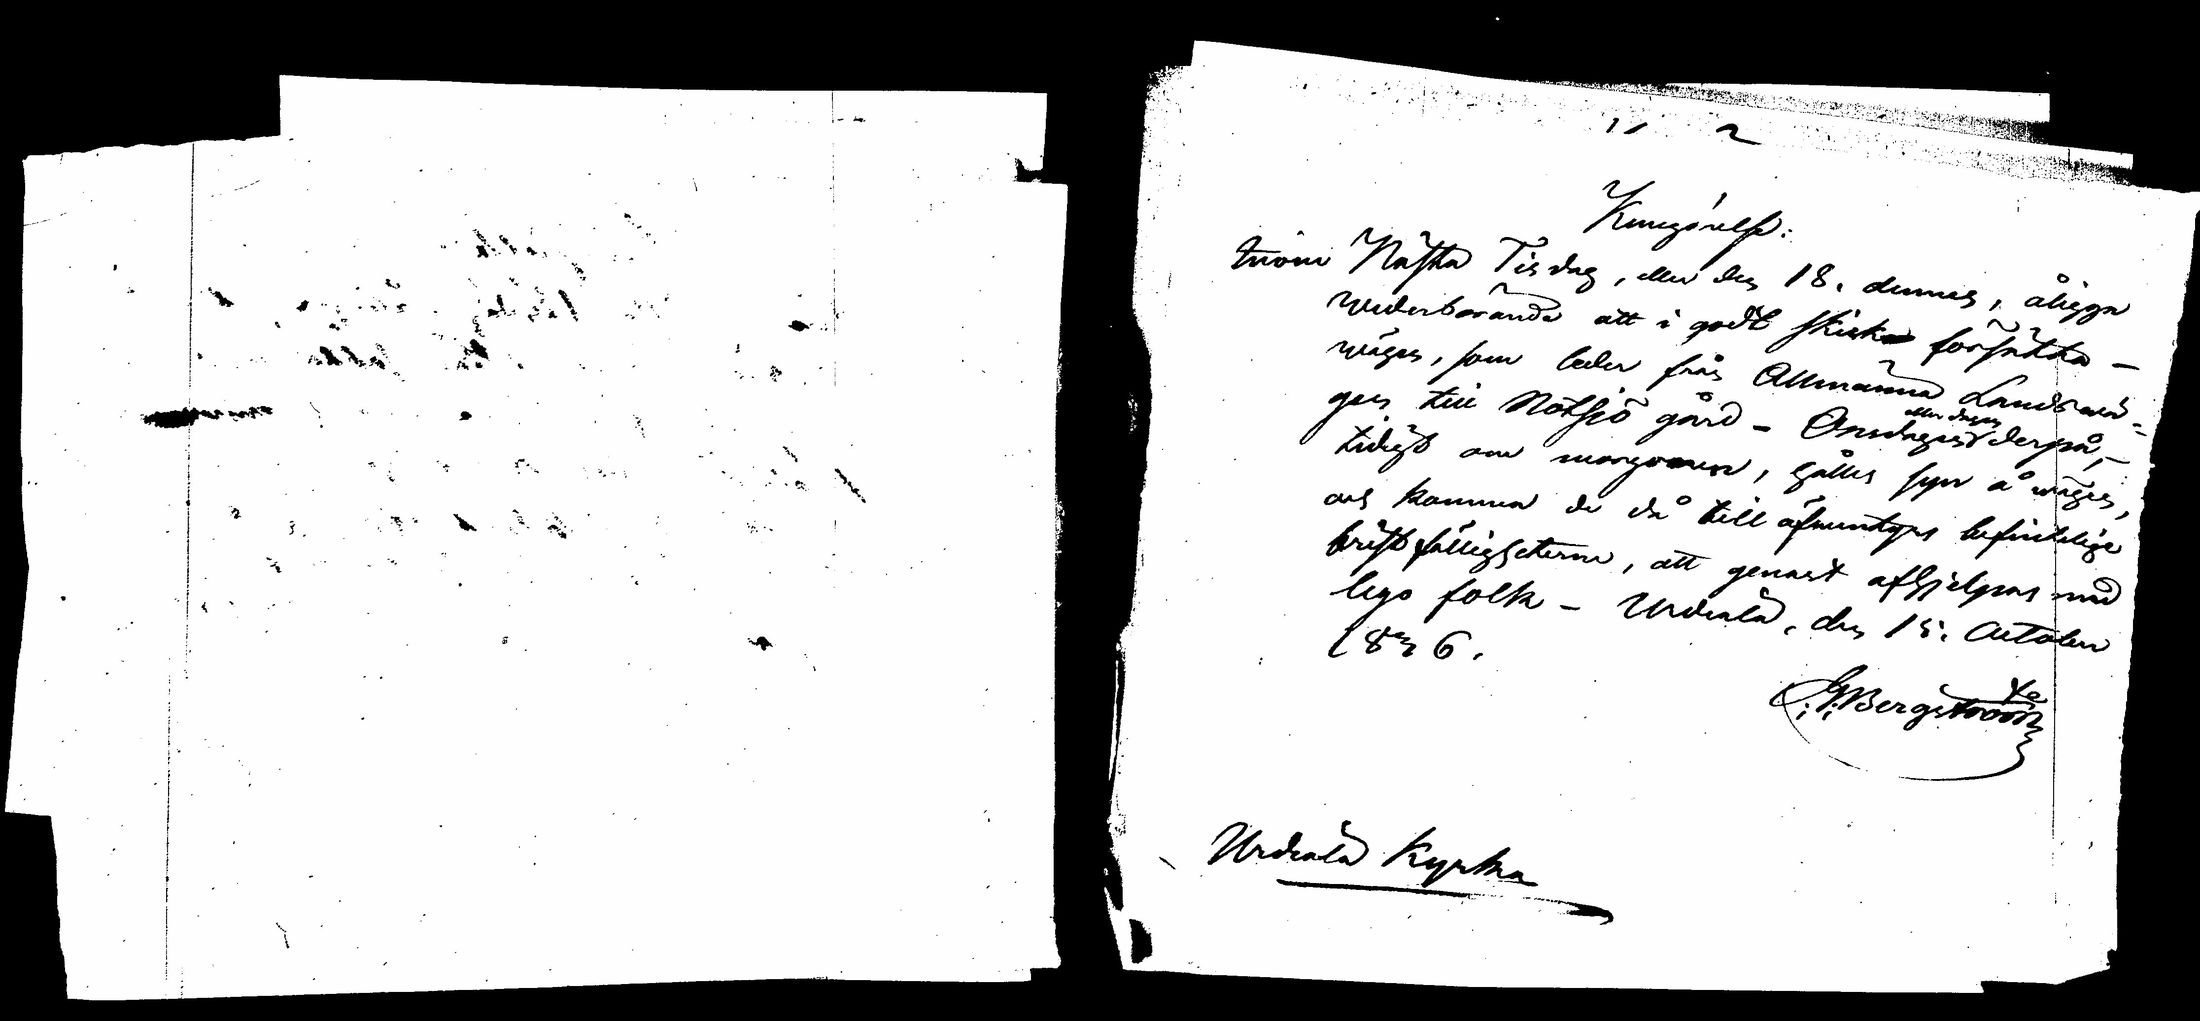 Kungörelse:
Inom Nästa Tisdag, eller den 18. dennes, åligga
wederbörande att i godt skick försätta –
wägen, som leder från Allmänna Landswä-
gen till Notsjö gård – Onsdagen derpå, –
eller dagen
tidigt om morgonen, hålles syn å wägen,
och komma de då till äfwentyrs befintelige
bristfälligheterne, att genast afhjelpas med
lego folk – Urdiala, den 15. October
1836.
G: Bergström
Urdiala Kyrka